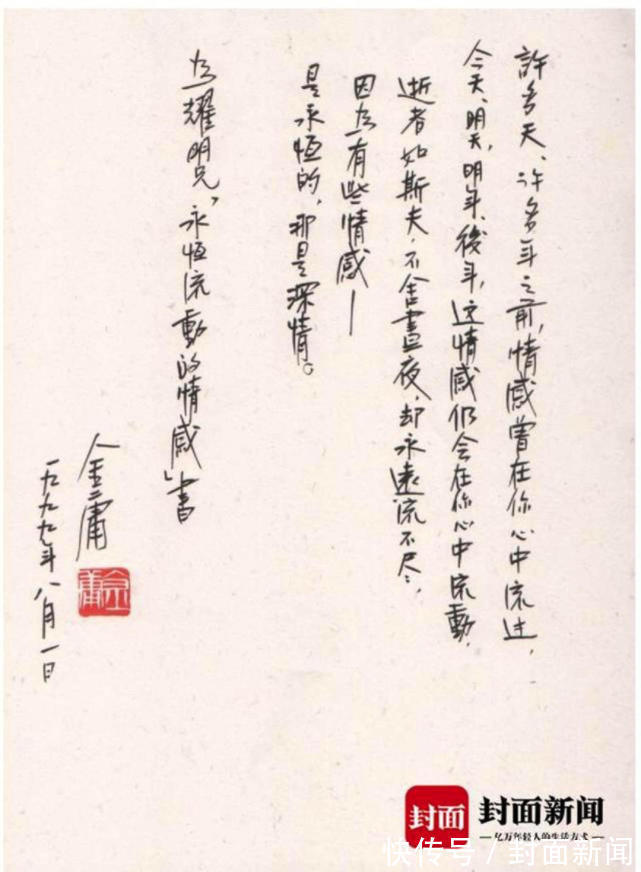 許多天、許多年之前，情感曾在你心中流过，
今天、明天，明年、後年，这情感仍会在你心中流動，
逝者如斯夫，不舍晝夜，却永遠流不尽，
因为有些情感—
是永恒的，那是深情。
为耀明兄「永恒流動的情感」書
金庸
金庸
一九九九年八月一日
封面
封面新闻
亿万年轻人的生活方式
快传号 / 封面新闻